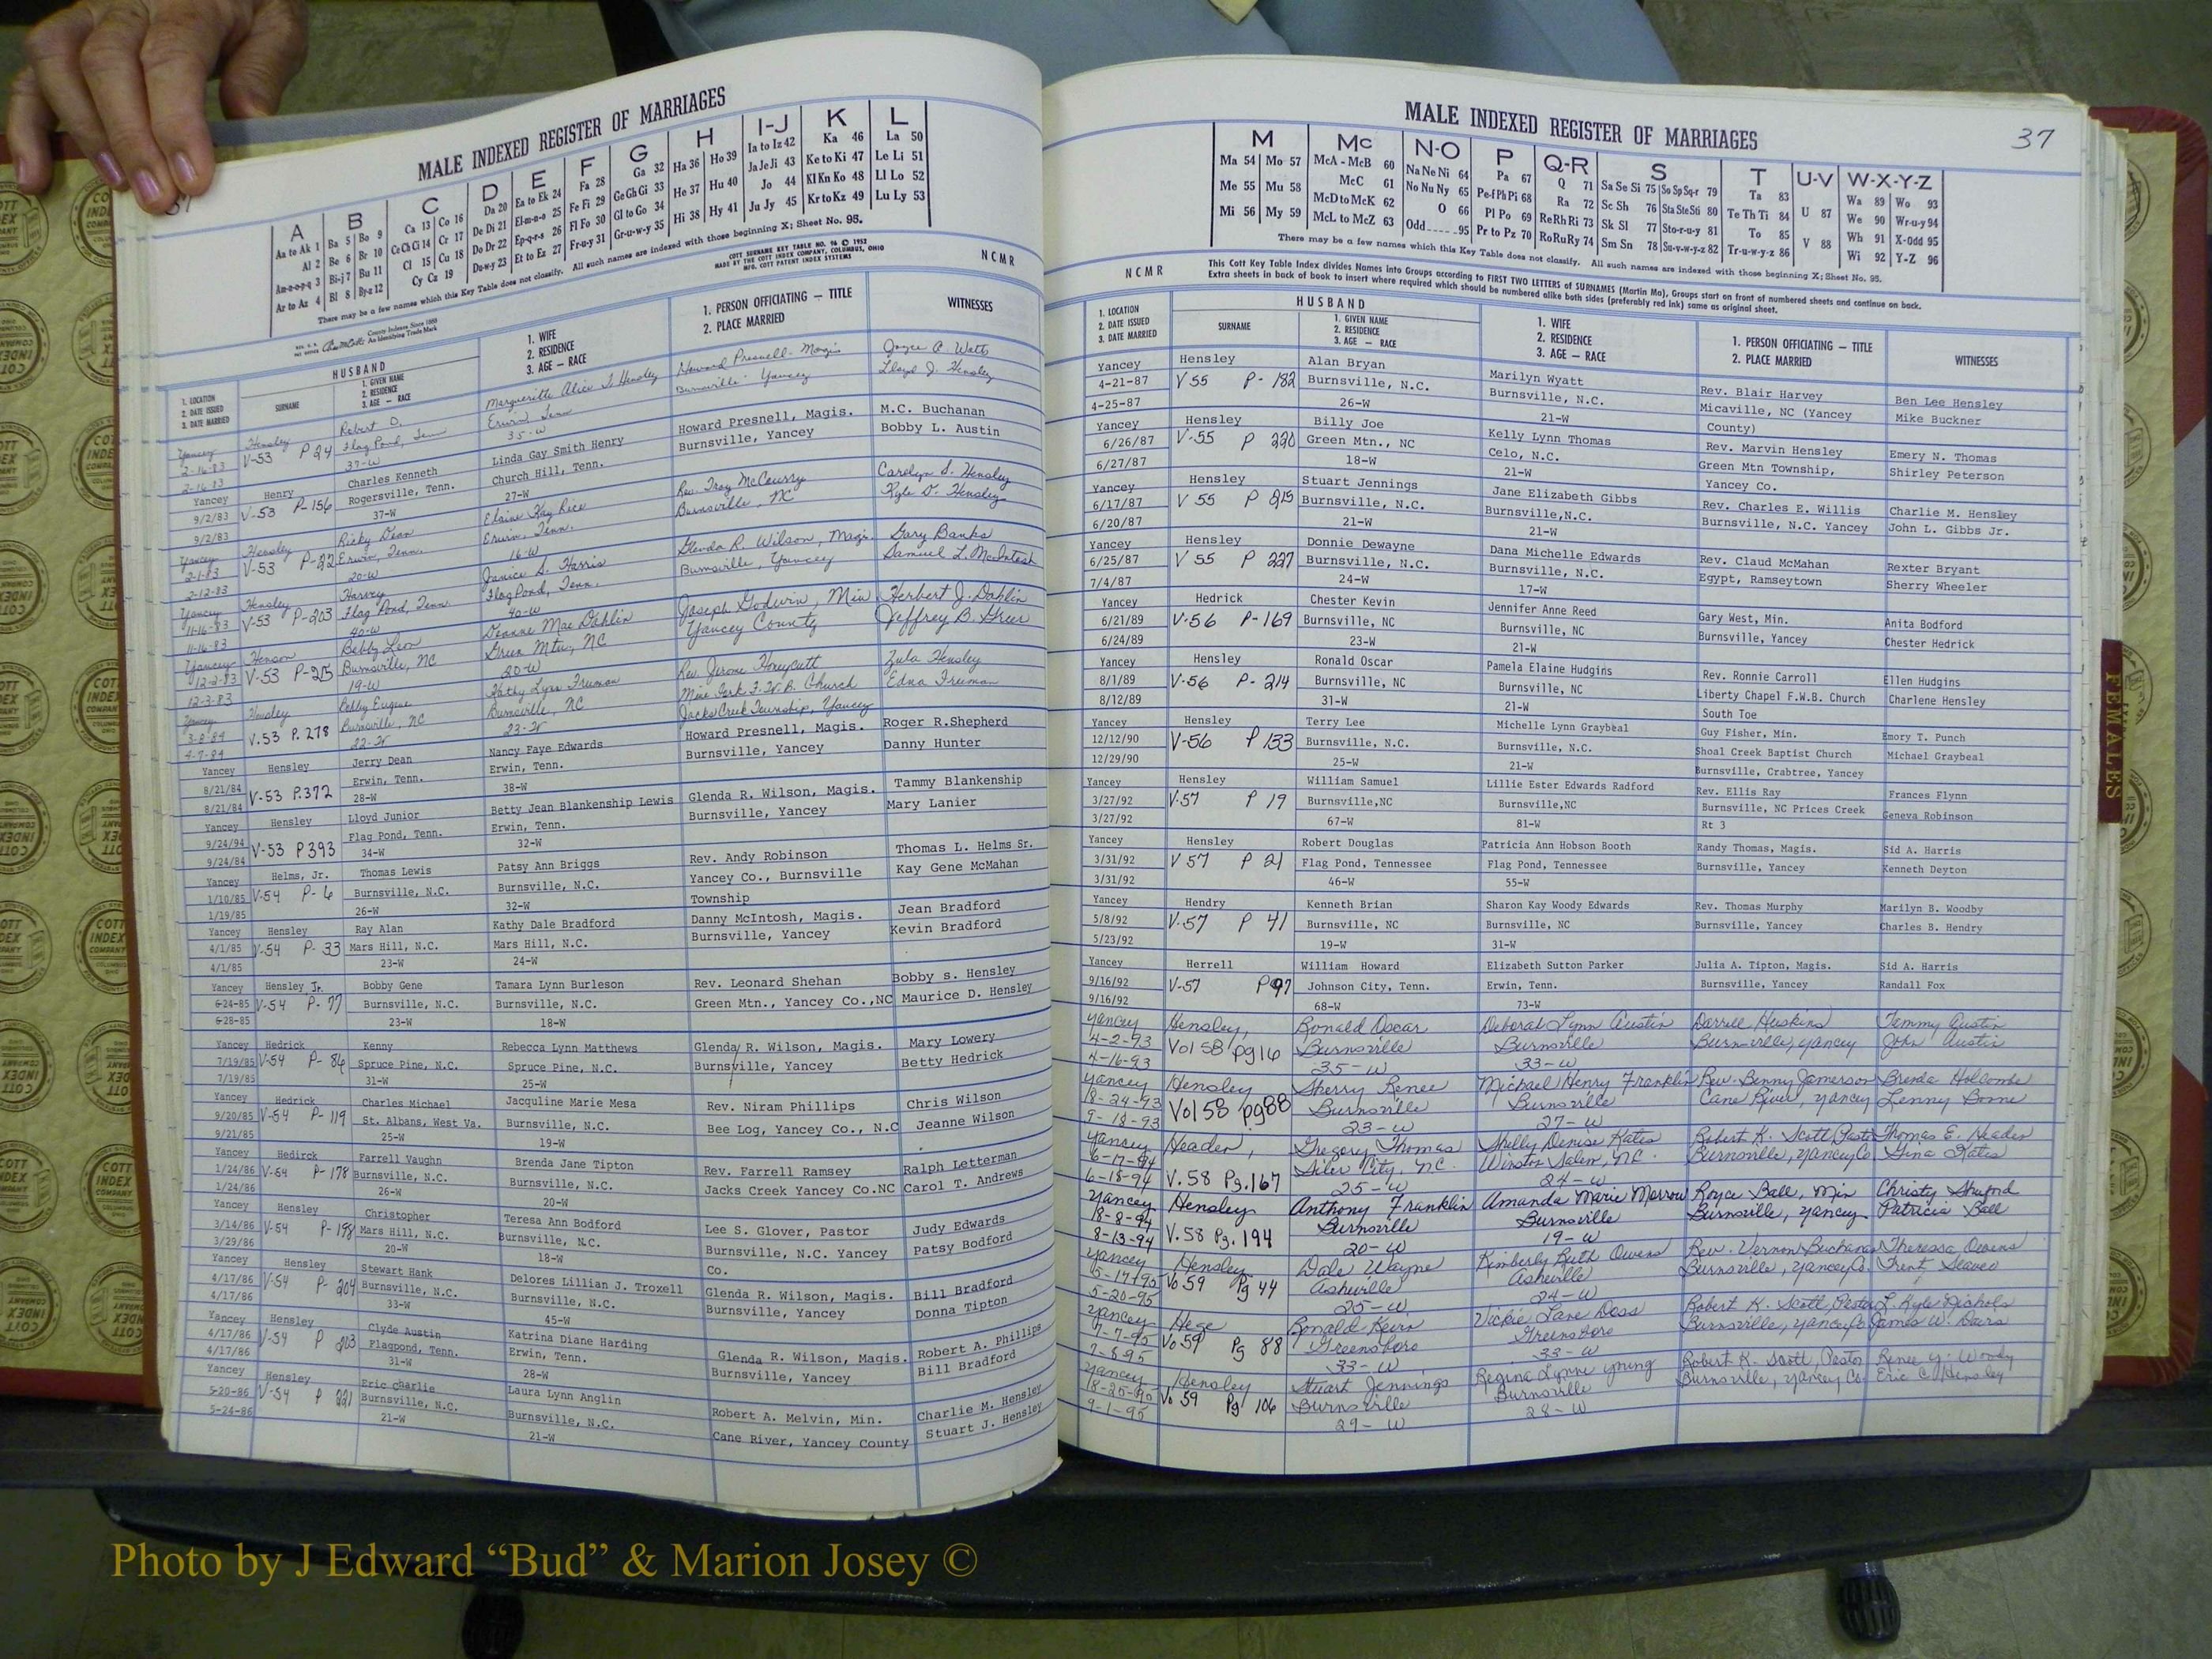 MALE INDEXED REGISTER OF MARRIAGES
A B C D E F G H I-J K L
Aa to Ak 1 Ba 5 Bo 9 Ca 13 Co 16 Da 20 Ea to Ek 24 Fa 28 Ga 32 Ha 36 Ho 39 Ia to Iz 42 Ka 46 La 50
Al 2 Be 6 Br 10 Ce Ch Ci 14 Cr 17 De Di 21 El-m-n-o 25 Fe Fi 29 Ge Gh Gi 33 He 37 Hu 40 Ja Je Ji 43 Ke to Ki 47 Le Li 51
Am-n-o-p-q 3 Bi-j 7 Bu 11 Cl 15 Cu 18 Do Dr 22 Ep-q-r-s 26 Fl Fo 30 Gl to Go 34 Hi 38 Hy 41 Jo 44 Kl Kn Ko 48 Ll Lo 52
Ar to Az 4 Bl 8 By-z 12 Cy Cz 19 Du-w-y 23 Et to Ez 27 Fr-u-y 31 Gr-u-w-y 35 Ju Jy 45 Kr to Kz 49 Lu Ly 53
There may be a few names which this Key Table does not classify. All such names are indexed with those beginning X; Sheet No. 95.
COTT SURNAME KEY TABLE NO. 96 © 1952
MADE BY THE COTT INDEX COMPANY, COLUMBUS, OHIO
MFG. COTT PATENT INDEX SYSTEMS
NCMR
County Indexes Since 1888
An Identifying Trade Mark
HUSBAND
1. LOCATION 2. DATE ISSUED 3. DATE MARRIED
SURNAME
1. GIVEN NAME 2. RESIDENCE 3. AGE — RACE
1. WIFE 2. RESIDENCE 3. AGE — RACE
1. PERSON OFFICIATING — TITLE 2. PLACE MARRIED
WITNESSES
Yancey Hensley Robert O. Marguerite Alice Hensley Howard Presnell- Magis Joyce A. Watts
2-16-83 V-53 P 24 Flag Pond, Tenn Erwin Tenn Burnsville Yancey Lloyd J. Hensley
2-16-83 37-W 35-W
Yancey Henry Charles Kenneth Linda Gay Smith Henry Howard Presnell, Magis. M.C. Buchanan
9/2/83 V-53 P-156 Rogersville, Tenn. Church Hill, Tenn. Burnsville, Yancey Bobby L. Austin
9/2/83 37-W 27-W
Yancey Hensley Ricky Dean Elaine Kay Rice Rev. Troy McCourry Carolyn S. Hensley
2-1-83 V-53 P-22 Erwin, Tenn. Erwin, Tenn. Burnsville, NC Kyle D. Hensley
2-12-83 20-W 16-W
Yancey Hensley Harvey Janice S. Harris Glenda R. Wilson, Magis. Gary Banks
11-16-83 V-53 P-203 Flag Pond, Tenn Flag Pond, Tenn. Burnsville, Yancey Samuel L. McIntosh
11-16-83 40-W 40-W
Yancey Henson Bobby Leon Deanne Mae Dahlin Joseph Godwin, Min Herbert J. Dahlin
12-2-83 V-53 P-215 Burnsville, NC Green Mtn, NC Yancey County Jeffrey B. Greer
12-3-83 19-W 20-W
Yancey Hensley Bobby Eugene Kathy Lynn Fruman Rev. Jerome Honeycutt Zula Hensley
3-8-84 V.53 P. 278 Burnsville, NC Burnsville, NC Mine Fork F.W.B. Church Edna Fruman
4-7-84 22-W 23-W Jacks Creek Township, Yancey
Yancey Hensley Jerry Dean Nancy Faye Edwards Howard Presnell, Magis. Roger R.Shepherd
8/21/84 V-53 P.372 Erwin, Tenn. Erwin, Tenn. Burnsville, Yancey Danny Hunter
8/21/84 28-W 38-W
Yancey Hensley Lloyd Junior Betty Jean Blankenship Lewis Glenda R. Wilson, Magis. Tammy Blankenship
9/24/94 V-53 P393 Flag Pond, Tenn. Erwin, Tenn. Burnsville, Yancey Mary Lanier
9/24/84 34-W 32-W
Yancey Helms, Jr. Thomas Lewis Patsy Ann Briggs Rev. Andy Robinson Thomas L. Helms Sr.
1/10/85 V-54 P-6 Burnsville, N.C. Burnsville, N.C. Yancey Co., Burnsville Kay Gene McMahan
1/19/85 26-W 32-W Township
Yancey Hensley Ray Alan Kathy Dale Bradford Danny McIntosh, Magis. Jean Bradford
4/1/85 V-54 P-33 Mars Hill, N.C. Mars Hill, N.C. Burnsville, Yancey Kevin Bradford
4/1/85 23-W 24-W
Yancey Hensley Jr. Bobby Gene Tamara Lynn Burleson Rev. Leonard Shehan Bobby s. Hensley
6-24-85 V-54 P-77 Burnsville, N.C. Burnsville, N.C. Green Mtn., Yancey Co.,NC Maurice D. Hensley
6-28-85 23-W 18-W
Yancey Hedrick Kenny Rebecca Lynn Matthews Glenda R. Wilson, Magis. Mary Lowery
7/19/85 V-54 P-86 Spruce Pine, N.C. Spruce Pine, N.C. Burnsville, Yancey Betty Hedrick
7/19/85 31-W 25-W
Yancey Hedrick Charles Michael Jacquline Marie Mesa Rev. Niram Phillips Chris Wilson
9/20/85 V-54 P-119 St. Albans, West Va. Burnsville, N.C. Bee Log, Yancey Co., N.C Jeanne Wilson
9/21/85 25-W 19-W
Yancey Hedirck Farrell Vaughn Brenda Jane Tipton Rev. Farrell Ramsey Ralph Letterman
1/24/86 V-54 P-178 Burnsville, N.C. Burnsville, N.C. Jacks Creek Yancey Co.NC Carol T. Andrews
1/24/86 26-W 20-W
Yancey Hensley Christopher Teresa Ann Bodford Lee S. Glover, Pastor Judy Edwards
3/14/86 V-54 P-198 Mars Hill, N.C. Burnsville, N.C. Burnsville, N.C. Yancey Patsy Bodford
3/29/86 20-W 18-W Co.
Yancey Hensley Stewart Hank Delores Lillian J. Troxell Glenda R. Wilson, Magis. Bill Bradford
4/17/86 V-54 P-204 Burnsville, N.C. Burnsville, N.C. Burnsville, Yancey Donna Tipton
4/17/86 33-W 45-W
Yancey Hensley Clyde Austin Katrina Diane Harding Glenda R. Wilson, Magis. Robert A. Phillips
4/17/86 V-54 P 203 Flagpond, Tenn. Erwin, Tenn. Burnsville, Yancey Bill Bradford
4/17/86 31-W 28-W
Yancey Hensley Eric Charlie Laura Lynn Anglin Robert A. Melvin, Min. Charlie M. Hensley
5-20-86 V-54 P 221 Burnsville, N.C. Burnsville, N.C. Cane River, Yancey County Stuart J. Hensley
5-24-86 21-W 21-W
MALE INDEXED REGISTER OF MARRIAGES 37
M Mc N-O P Q-R S T U-V W-X-Y-Z
Ma 54 Mo 57 McA - McB 60 Na Ne Ni 64 Pa 67 Q 71 Sa Se Si 75 So Sp Sq-r 79 Ta 83 Wa 89 Wo 93
Me 55 Mu 58 McC 61 No Nu Ny 65 Pe-f Ph Pi 68 Ra 72 Sc Sh 76 Sta Ste Sti 80 Te Th Ti 84 U 87 We 90 Wr-u-y 94
McD to McK 62 O 66 Pl Po 69 Re Rh Ri 73 Sk Sl 77 Sto-r-u-y 81 To 85 Wh 91 X-Odd 95
Mi 56 My 59 McL to McZ 63 Odd 95 Pr to Pz 70 Ro Ru Ry 74 Sm Sn 78 Su-v-w-y-z 82 Tr-u-w-y-z 86 V 88 Wi 92 Y-Z 96
There may be a few names which this Key Table does not classify. All such names are indexed with those beginning X; Sheet No. 95.
NCMR
This Cott Key Table Index divides Names into Groups according to FIRST TWO LETTERS of SURNAMES (Martin Ma), Groups start on front of numbered sheets and continue on back.
Extra sheets in back of book to insert where required which should be numbered alike both sides (preferably red ink) same as original sheet.
HUSBAND
1. LOCATION 2. DATE ISSUED 3. DATE MARRIED
SURNAME
1. GIVEN NAME 2. RESIDENCE 3. AGE — RACE
1. WIFE 2. RESIDENCE 3. AGE — RACE
1. PERSON OFFICIATING — TITLE 2. PLACE MARRIED
WITNESSES
Yancey Hensley Alan Bryan Marilyn Wyatt Rev. Blair Harvey Ben Lee Hensley
4-21-87 V 55 P-182 Burnsville, N.C. Burnsville, N.C. Micaville, NC (Yancey Mike Buckner
4-25-87 26-W 21-W County)
Yancey Hensley Billy Joe Kelly Lynn Thomas Rev. Marvin Hensley Emery N. Thomas
6/26/87 V-55 P 220 Green Mtn., NC Celo, N.C. Green Mtn Township, Shirley Peterson
6/27/87 18-W 21-W Yancey Co.
Yancey Hensley Stuart Jennings Jane Elizabeth Gibbs Rev. Charles E. Willis Charlie M. Hensley
6/17/87 V 55 P 215 Burnsville, N.C. Burnsville,N.C. Burnsville, N.C. Yancey John L. Gibbs Jr.
6/20/87 21-W 21-W
Yancey Hensley Donnie Dewayne Dana Michelle Edwards Rev. Claud McMahan Rexter Bryant
6/25/87 V 55 P 227 Burnsville, N.C. Burnsville, N.C. Egypt, Ramseytown Sherry Wheeler
7/4/87 24-W 17-W
Yancey Hedrick Chester Kevin Jennifer Anne Reed Gary West, Min. Anita Bodford
6/21/89 V-56 P-169 Burnsville, NC Burnsville, NC Burnsville, Yancey Chester Hedrick
6/24/89 23-W 21-W
Yancey Hensley Ronald Oscar Pamela Elaine Hudgins Rev. Ronnie Carroll Ellen Hudgins
8/1/89 V-56 P-214 Burnsville, NC Burnsville, NC Liberty Chapel F.W.B. Church Charlene Hensley
8/12/89 31-W 21-W South Toe
Yancey Hensley Terry Lee Michelle Lynn Graybeal Guy Fisher, Min. Emory T. Punch
12/12/90 V-56 P 133 Burnsville, N.C. Burnsville, N.C. Shoal Creek Baptist Church Michael Graybeal
12/29/90 25-W 21-W Burnsville, Crabtree, Yancey
Yancey Hensley William Samuel Lillie Ester Edwards Radford Rev. Ellis Ray Frances Flynn
3/27/92 V-57 P 19 Burnsville,NC Burnsville,NC Burnsville, NC Prices Creek Geneva Robinson
3/27/92 67-W 81-W Rt 3
Yancey Hensley Robert Douglas Patricia Ann Hobson Booth Randy Thomas, Magis. Sid A. Harris
3/31/92 V 57 P 21 Flag Pond, Tennessee Flag Pond, Tennessee Burnsville, Yancey Kenneth Deyton
3/31/92 46-W 55-W
Yancey Hendry Kenneth Brian Sharon Kay Woody Edwards Rev. Thomas Murphy Marilyn B. Woodby
5/8/92 V-57 P 41 Burnsville, NC Burnsville, NC Burnsville, Yancey Charles B. Hendry
5/23/92 19-W 31-W
Yancey Herrell William Howard Elizabeth Sutton Parker Julia A. Tipton, Magis. Sid A. Harris
9/16/92 V-57 P97 Johnson City, Tenn. Erwin, Tenn. Burnsville, Yancey Randall Fox
9/16/92 68-W 73-W
Yancey Hensley, Ronald Oscar Deborah Lynn Austin Darrell Huskins Tommy Austin
4-2-93 Vol 58 pg16 Burnsville Burnsville Burnsville, Yancey John Austin
4-16-93 35-W 33-W
Yancey Hensley Sherry Renee Michael Henry Franklin Rev. Benny Jamerson Brenda Holcombe
8-24-93 Vol 58 pg88 Burnsville Burnsville Cane River, Yancey Lenny Boone
9-18-93 23-W 27-W
Yancey Headen, Gregory Thomas Shelly Denise Kates Robert K. Scott, Pastor Thomas E. Headen
6-17-94 V.58 Pg.167 Siler City, NC. Winston Salem, NC. Burnsville, Yancey Co Gina Kates
6-18-94 25-W 24-W
Yancey Hensley Anthony Franklin Amanda Marie Morrow Royce Ball, Min Christy Shuford
8-8-94 V.58 Pg. 194 Burnsville Burnsville Burnsville, Yancey Patricia Ball
8-13-94 20-W 19-W
Yancey Hensley Dale Wayne Kimberly Ruth Owens Rev. Vernon Buchanan Theressa Owens
5-17-95 Vo 59 Pg 44 Asheville Asheville Burnsville, Yancey Co. Trent
5-20-95 25-W 24-W
Yancey Hege Ronald Kevin Vickie Lane Doss Robert K. Scott, Pastor L. Kyle Nichols
7-7-95 Vo 59 Pg 88 Greensboro Greensboro Burnsville, Yancey Co James W. Doss
7-8-95 33-W 33-W
Yancey Hensley Stuart Jennings Regina Lynne Young Robert K. Scott, Pastor Renee Y. Woody
8-25-95 Vo 59 Pg 106 Burnsville Burnsville Burnsville, Yancey Co. Eric C. Hensley
9-1-95 29-W 28-W
FEMALES
COTT INDEX COMPANY
Photo by J Edward “Bud” & Marion Josey ©